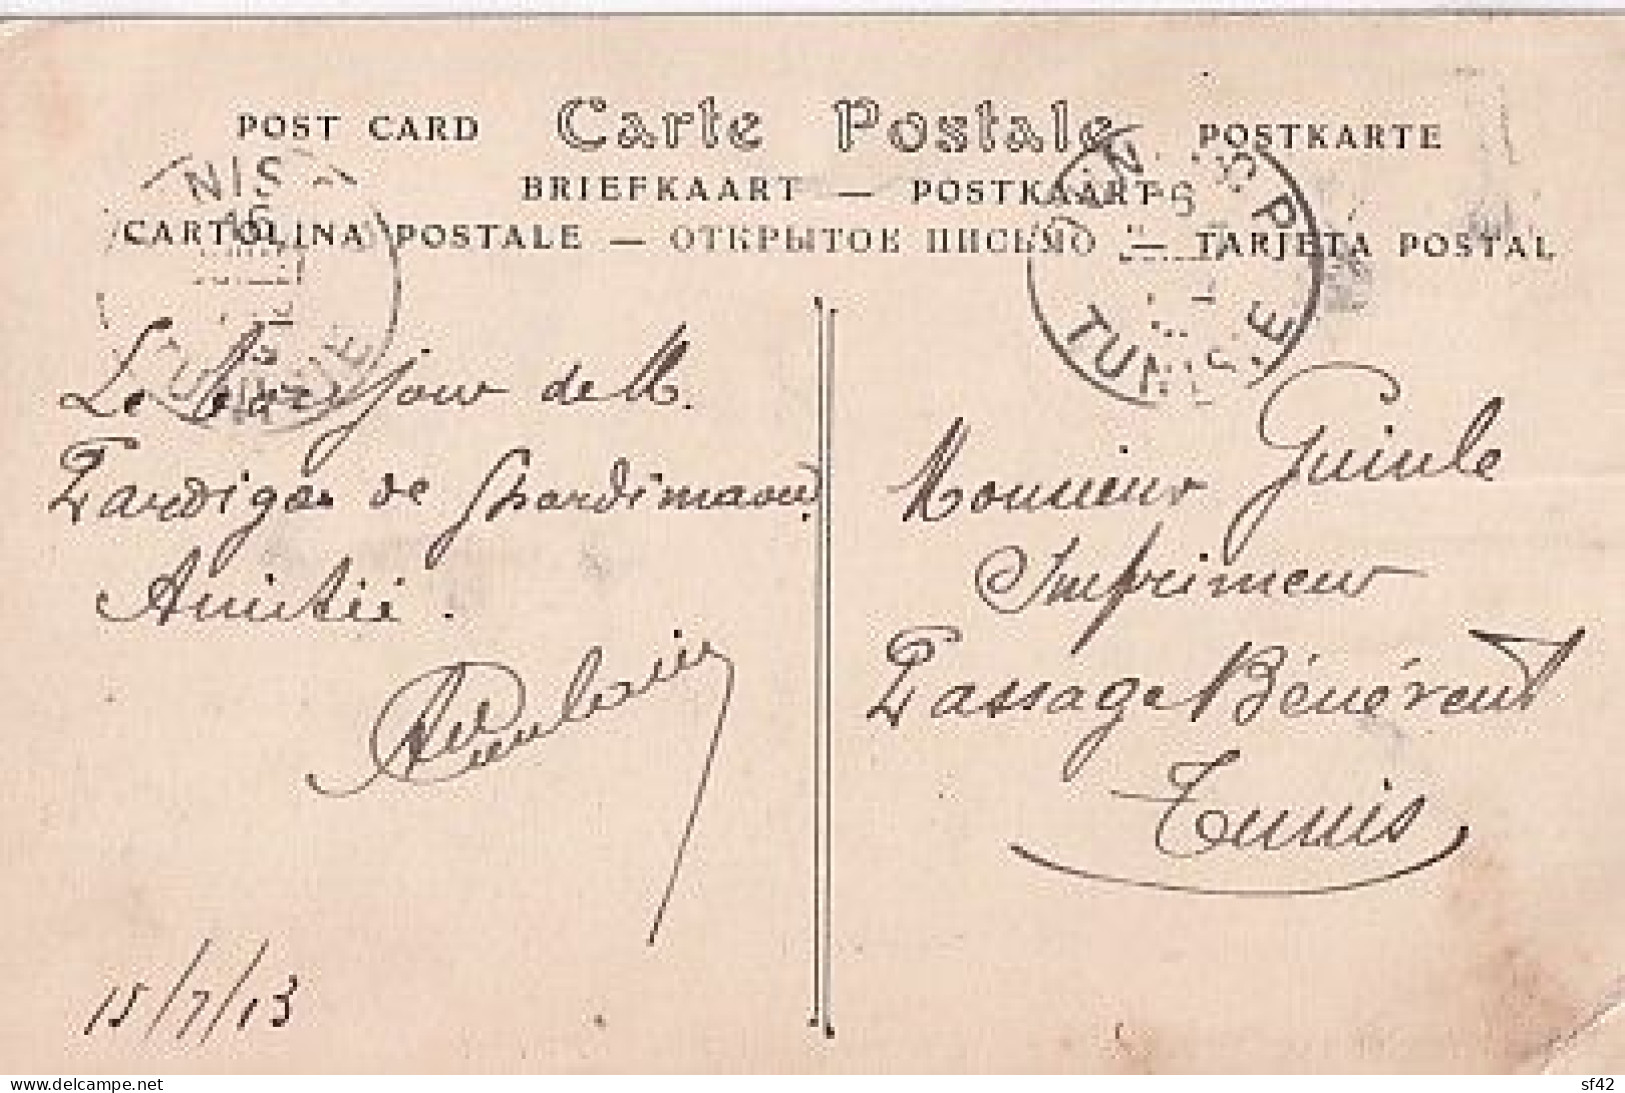 POST CARD Carte Postale POSTKARTE
BRIEFKAART — POSTKAART
CARTOLINA POSTALE — ОТКРЫТОЕ ПИСЬМО — TARJETA POSTAL
NIS
16
TUNISIE
Le jour de M.
Pardigon de Ghardimaou
Amitié.
15/7/13
Monsieur Guinle
Imprimeur
Passage Bénévent
Tunis
www.delcampe.net
sf42